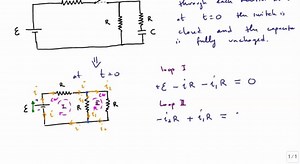 through each
at t=0 the switch is
closed and the capacitor
is fully uncharged.
R
R
R
ε
C
⇓
at t=0
Loop I
+ε - iR - i₁R = 0
Loop II
-i₂R + i₁R =
ε
R
R
R
1/1